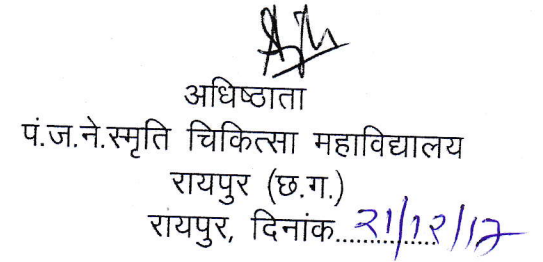 अधिष्ठाता
पं.ज.ने.स्मृति चिकित्सा महाविद्यालय
रायपुर (छ.ग.)
रायपुर, दिनांक..............